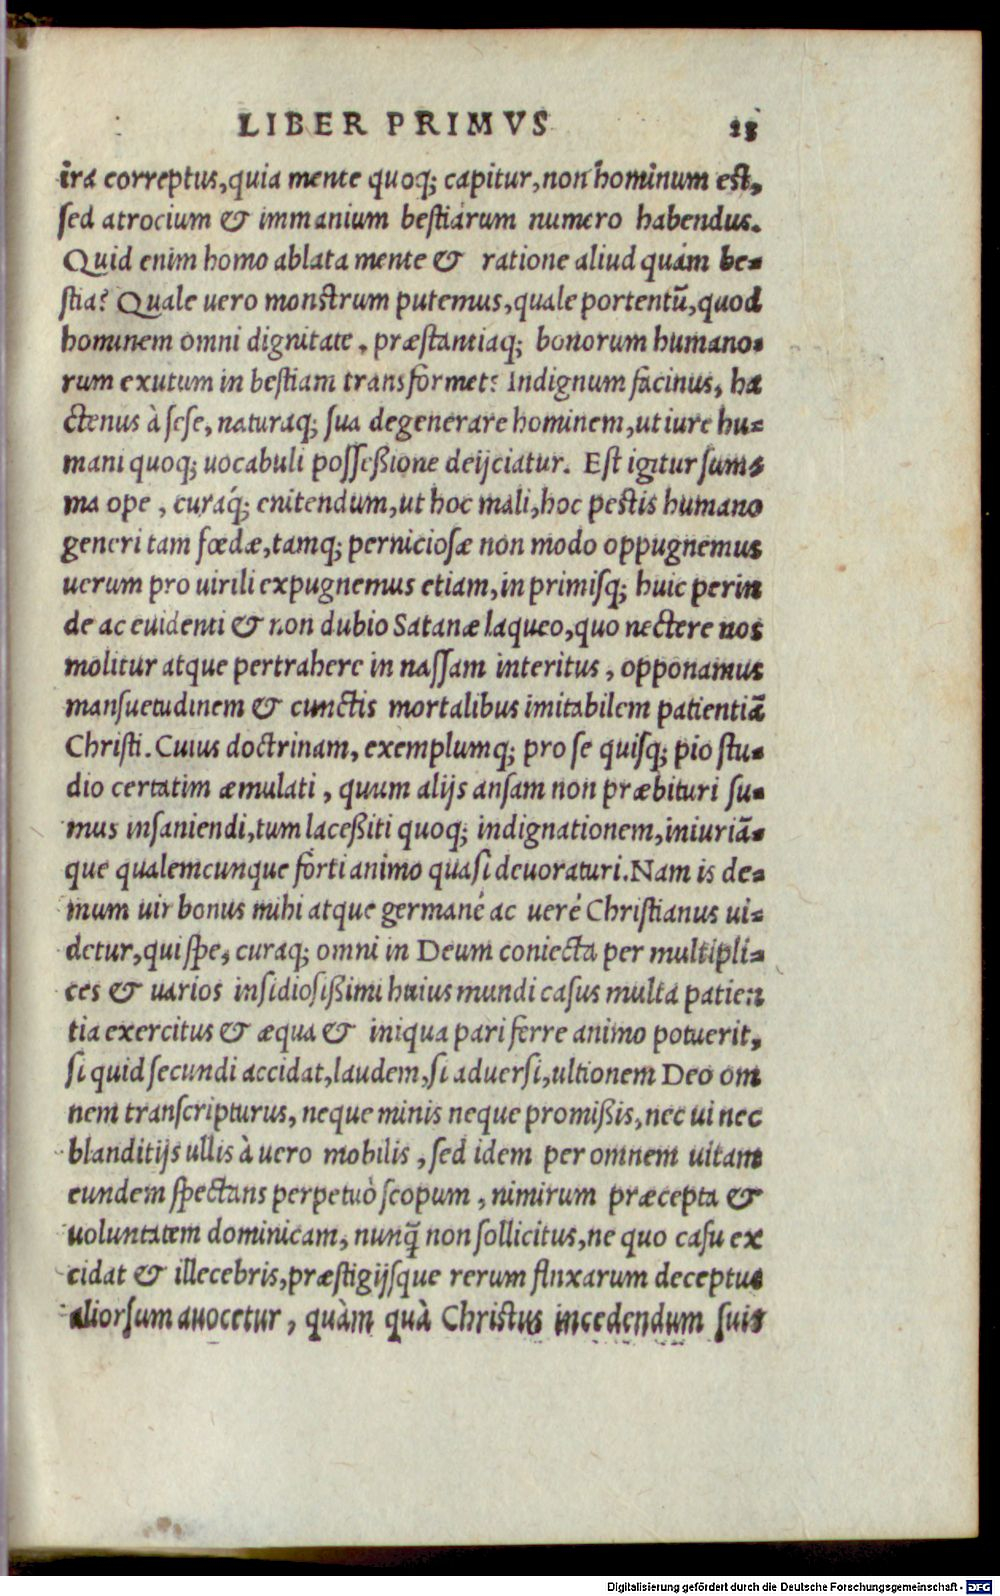 LIBER PRIMVS 28
ira correptus, quia mente quoq; capitur, non hominum est,
sed atrocium & immanium bestiarum numero habendus.
Quid enim homo ablata mente & ratione aliud quám be-
stia? Quale uero monstrum putemus, quale portentũ, quod
hominem omni dignitate, præstantiaq; bonorum humano-
rum exutum in bestiam transformet? Indignum facinus, ha
ctenus à sese, naturaq; sua degenerare hominem, ut iure hu-
mani quoq; uocabuli posseßione deijciatur. Est igitur sum-
ma ope, curaq́; enitendum, ut hoc mali, hoc pestis humano
generi tam fœdæ, tamq; perniciosæ non modo oppugnemus
uerum pro uirili expugnemus etiam, in primisq; huic perin
de ac euidenti & non dubio Satanæ laqueo, quo nectere nos
molitur atque pertrahere in nassam interitus, opponamus
mansuetudinem & cunctis mortalibus imitabilem patientiã
Christi. Cuius doctrinam, exemplumq; pro se quisq; pio stu-
dio certatim æmulati, quum alijs ansam non præbituri su-
mus insaniendi, tum laceßiti quoq; indignationem, iniuriã-
que qualemcunque forti animo quasi deuoraturi. Nam is de-
mum uir bonus mihi atque germané ac ueré Christianus ui-
detur, qui spe, curaq; omni in Deum coniecta per multipli-
ces & uarios insidiosißimi huius mundi casus multa patien
tia exercitus & æqua & iniqua pari ferre animo potuerit,
si quid secundi accidat, laudem, si aduersi, ultionem Deo om
nem transcripturus, neque minis neque promißis, nec ui nec
blanditijs ullis à uero mobilis, sed idem per omnem uitam
eundem spectans perpetuò scopum, nimirum præcepta &
uoluntatem dominicam, nunq̃ non sollicitus, ne quo casu ex
cidat & illecebris, præstigijsque rerum fluxarum deceptus
aliorsum auocetur, quàm quà Christus incedendum suis
Digitalisierung gefördert durch die Deutsche Forschungsgemeinschaft - DFG